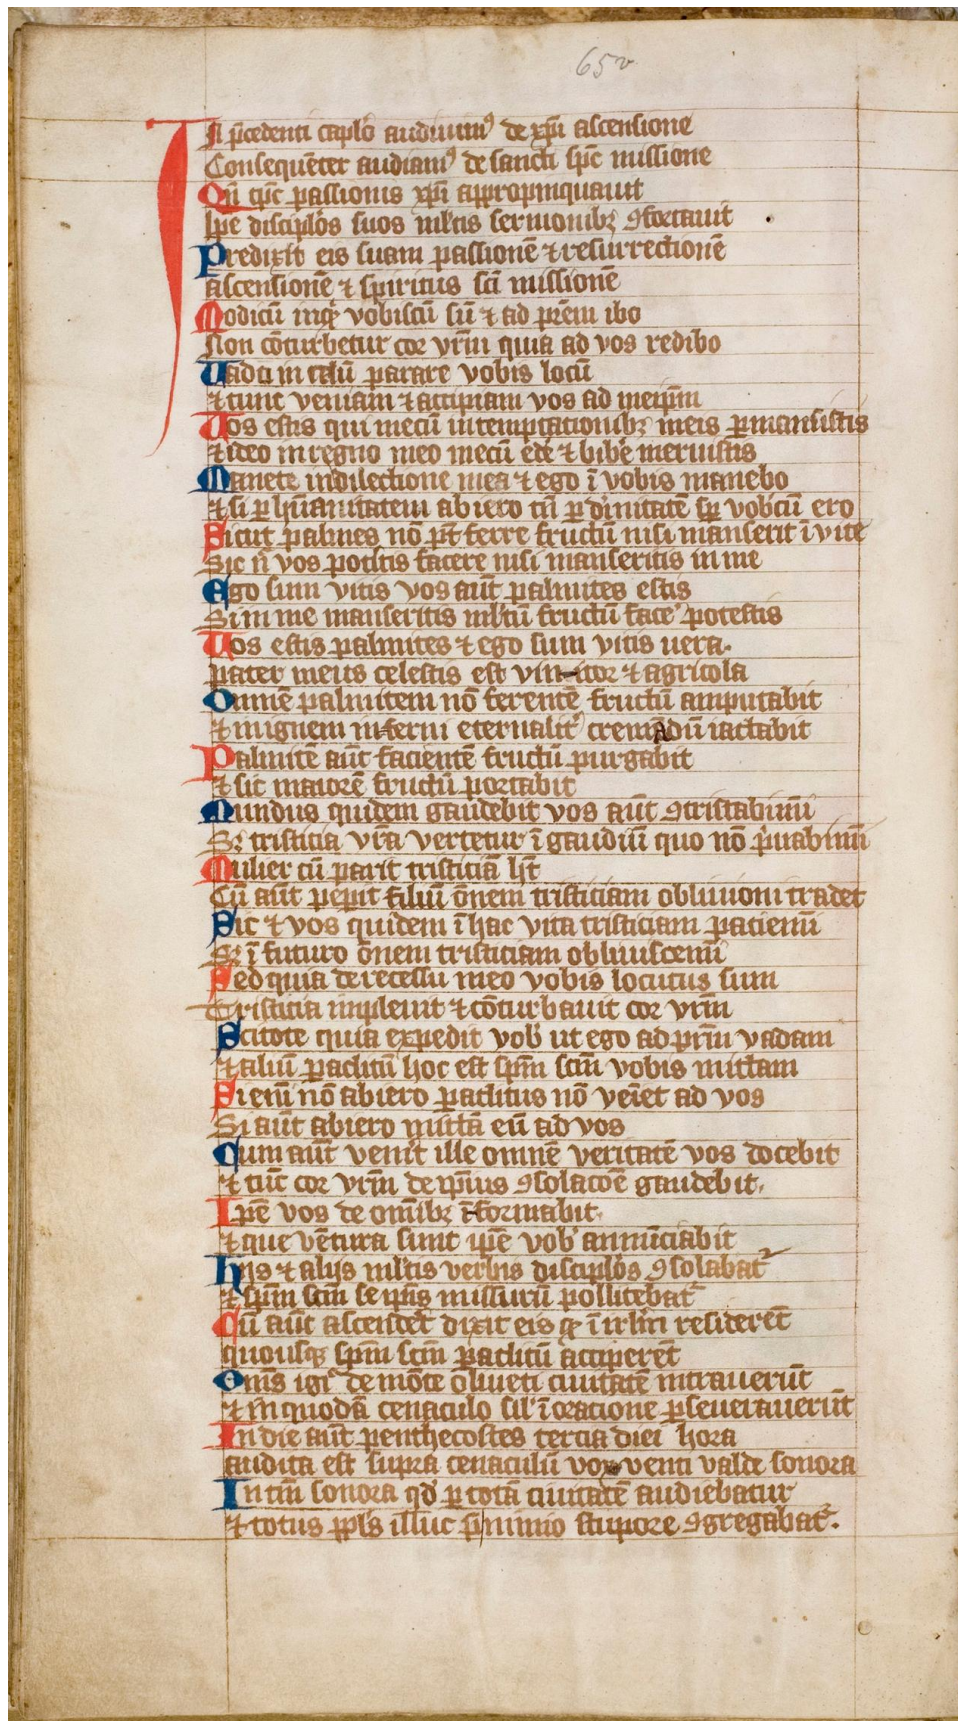 65v
In p̄cedenti capl̄o audiuimꝰ de xp̄i ascensione
Consequēter audiamꝰ de sancti sp̄c missione
Qn̄ tp̄c passionis xp̄i appropinquauit
Ip̄e discipl̄os suos ml̄tis sermonibꝫ ꝯfortauit
Predixit eis suam passionē ⁊ resurrectionē
ascensionē ⁊ spiritus sc̄i missionē
Modicū inqͥ vobiscū sū ⁊ ad pr̄em ibo
Non cōturbetur cor vr̄m quia ad vos redibo
Vado in celū parare vobis locū
⁊ tunc veniam ⁊ accipiam vos ad meip̄m
Vos estis qui mecū in temptationibꝫ meis ꝑmansistis
⁊ ideo in regno meo mecū edē ⁊ bibē meruistis
Manete in dilectione mea ⁊ ego ī vobis manebo
⁊ si ꝑ hūanitatem abiero tn̄ ꝑ diuinitatē sꝑ vobcū ero
Sicut palmes nō pt̄ ferre fructū nisi manserit ī vite
Sic n̄ vos potestis facere nisi manseritis in me
Ego sum vitis vos aūt palmites estis
Si in me manseritis ml̄tū fructū face᷑ potestis
Vos estis palmites ⁊ ego sum vitis uera.
pater meus celestis est vinitor ⁊ agricola
Omnē palmitem nō ferentē fructū amputabit
⁊ in ignem inferni eternalit᷑ cremādū iactabit
Palmitē aūt facientē fructū purgabit
⁊ sic maiorē fructū portabit
Mundus quidem gaudebit vos aūt ꝯtristabimī
Sꝫ tristicia vr̄a vertetur ī gaudiū quo nō pͥuabimī
Mulier cū parit tristiciā hꝫ
Cū aūt pepit filiū ōnem tristiciam obliuioni tradet
Sic ⁊ vos quidem ī hac vita tristiciam patiemī
Sꝫ ī futuro ōnem tristiciam obliuiscemī
Sed quia de recessu meo vobis locutus sum
Tristicia impleuit ⁊ cōturbauit cor vr̄m
Scitote quia expedit vob᷑ ut ego ad pr̄m vadam
⁊ aliū ꝑaclitū hoc est sp̄m sc̄m vobis mittam
Si eni nō abiero ꝑaclitus nō veīet ad vos
Si aūt abiero mittā eū ad vos
Cum aūt venīt ille omnē veritatē vos docebit
⁊ tūc cor vr̄m de ip̄ius ꝯsolacōe gaudebit.
Ip̄e vos de omībꝫ īformabit.
⁊ que vētura sunt ip̄e vob᷑ annūciabit
Hijs ⁊ alijs ml̄tis verbis discipl̄os ꝯsolabat᷑
⁊ sp̄m sc̄m se ip̄is missurū pollicebat᷑
Cū aūt ascendet᷑ dixit eis qͥ ī irl̄m resiterēt
quousqꝫ sp̄m sc̄m ꝑaclitū acciperēt
Om̄s igͥ de mōte oliueti ciuitatē intrauerūt
⁊ in quodā cenaculo sil᷑ ī oratione ꝑseuerauerūt
In die aūt penthecostes tercia diei hora
audita est supra cenaculū vox venti valde sonora
In tm̄ sonora qd᷑ ꝑ totā ciuitatē audiebatur
⁊ totus ppl̄s illuc p̄ nimio stupore ꝯgregabat᷑.